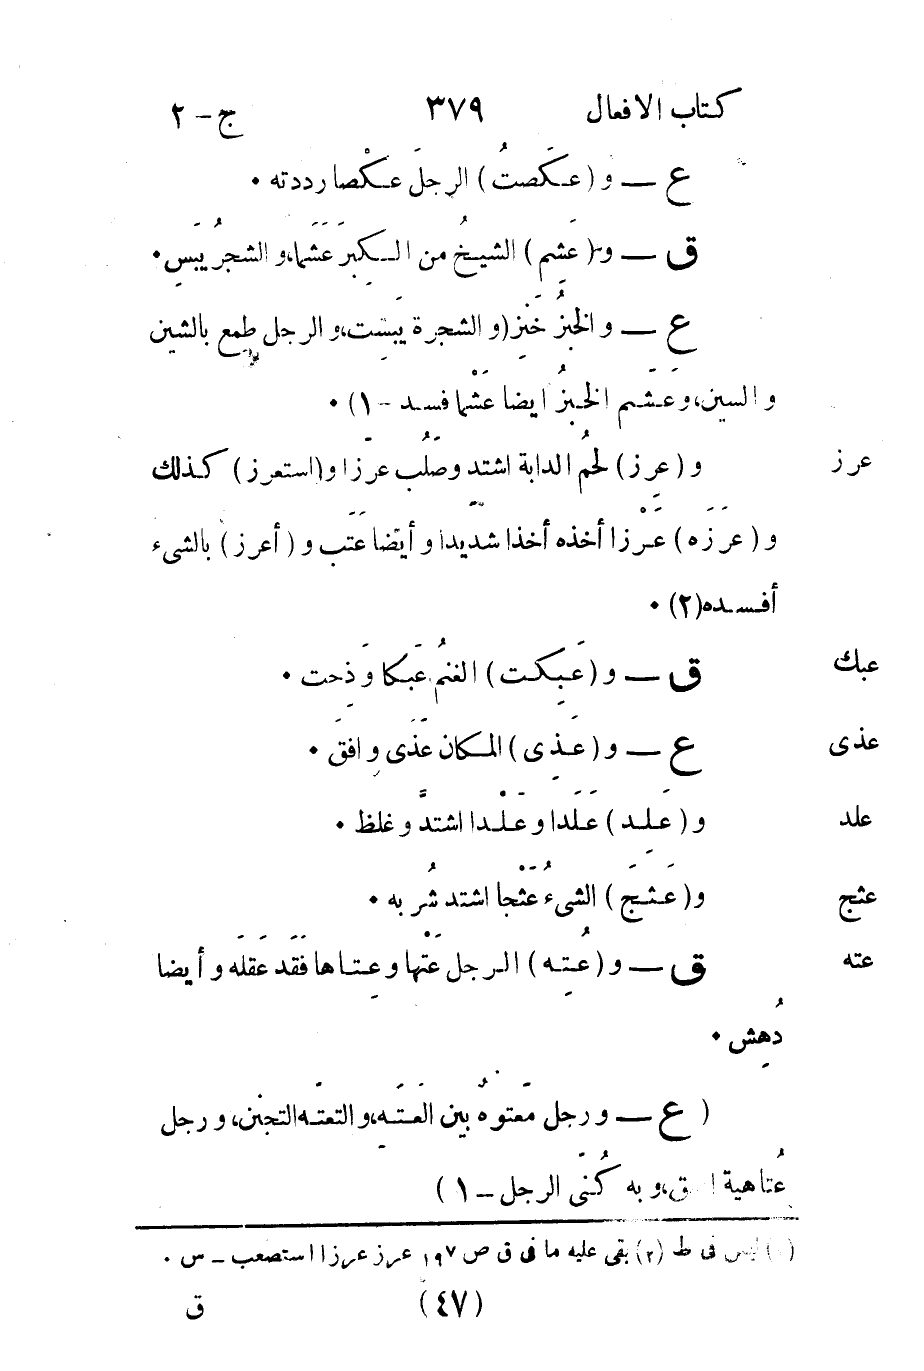 كتاب الافعال ٣٧٩ ج - ٢
ع — و (عَكَصتُ) الرجلَ عكْصا رددته •
ق — و (عَشِم) الشيخُ من الكِبَر عَشَما، و الشجرُ يَبَس •
ع — و الخبزُ خَنِز (و الشجرة يَبَست، و الرجل طمِع بالشين
و السين، و عَشَم الخبزُ ايضا عَشْما فسد - ١) •
عرز و (عَرَز) لحمُ الدابة اشتد وصَلُب عرَزا و (استعرز) كذلك
و (عرَزَه) عَرْزا أخذه أخذا شديدا و أيضا عَتَب و (أعرز) بالشىء
أفسده (٢) •
عبك ق — و (عَبِكت) الغنمُ عَبَكا وَذِحت •
عذى ع — و (عَذِى) المكان عَذًى وافقَ •
علد و (عَلِد) عَلَدا و عَلْدا اشتدَّ و غلظ •
عثج و (عَثَج) الشىءُ عَثْجا اشتد شُربه •
عته ق — و (عُتِه) الرجل عَتْها و عِتاها فَقَد عَقلَه و أيضا
دُهِش •
( ع — و رجل معتوهٌ بين العَتَه، و التعتّه التجنن، و رجل
عُتاهية ق، و به كُنِّى الرجل - ١ )
ليس فى ط (٢) بقى عليه ما فى ق ص ١٩٧ عرز عرزا استصعب - س •
(٤٧) ق